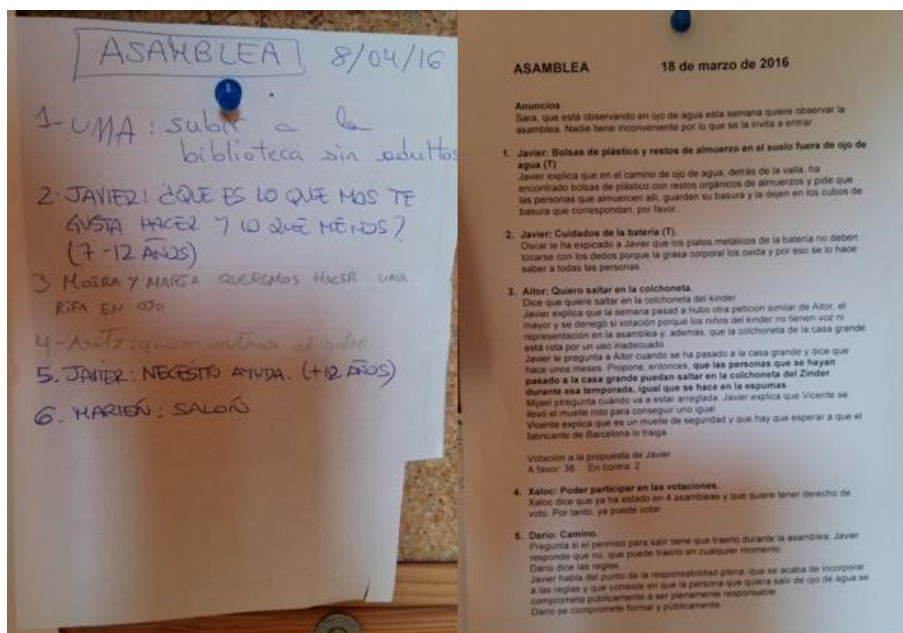 ASAMBLEA 8/04/16
1-UMA: subir a la
biblioteca sin adultos
2. JAVIER: ¿QUE ES LO QUE MAS TE
GUSTA HACER Y LO QUE MENOS?
(7-12 AÑOS)
3 MOIRA Y MARÍA QUEREMOS HACER UNA
RIFA EN OJO
4- quiero entrar al
5. JAVIER: NECESITO AYUDA. (+12 AÑOS)
6. MARIEN: SALON
ASAMBLEA 18 de marzo de 2016
Anuncios
Sara, que está observando en ojo de agua esta semana quiere observar la
asamblea. Nadie tiene inconveniente por lo que se la invita a entrar.
1. Javier: Bolsas de plástico y restos de almuerzo en el suelo fuera de ojo de
agua (T)
Javier explica que en el camino de ojo de agua, detrás de la valla, ha
encontrado bolsas de plástico con restos orgánicos de almuerzos y pide que
las personas que almuercen allí, guarden su basura y la dejen en los cubos de
basura que correspondan, por favor.
2. Javier: Cuidados de la batería (T).
Oscar le ha expicado a Javier que los platos metálicos de la batería no deben
tocarse con los dedos porque la grasa corporal los oxida y por eso se lo hace
saber a todas las personas.
3. Aitor: Quiero saltar en la colchoneta.
Dice que quiere saltar en la colchoneta del kinder.
Javier explica que la semana pasad a hubo otra petición similar de Aitor, el
mayor y se denegó si votación porque los niños del kinder no tienen voz ni
representación en la asamblea y, además, que la colchoneta de la casa grande
está rota por un uso inadecuado.
Javier le pregunta a Aitor cuándo se ha pasado a la casa grande y dice que
hace unos meses. Propone, entonces, que las personas que se hayan
pasado a la casa grande puedan saltar en la colchoneta del Zinder
durante esa temporada, igual que se hace en la espumas.
Mijael ptregunta cuándo va a estar arreglada. Javier explica que Vicente se
llevó el muelle roto para conseguir uno igual.
Vicente explica que es un muelle de seguridad y que hay que esperar a que el
fabricante de Barcelona lo traiga.
Votación a la propuesta de Javier
A favor: 36 En contra: 2
4. Xaloc: Poder participar en las votaciones.
Xaloc dice que ya ha estado en 4 asambleas y que quiere tener derecho de
voto. Por tanto, ya puede votar.
5. Darío: Camino.
Pregunta si el permiso para salir tiene que traerlo durante la asamblea. Javier
responde que no, que puede traerlo en cualquier momento.
Darío dice las reglas.
Javier habla del punto de la responsabilidad plena, que se acaba de incorporar
a las reglas y que consiste en que la persona que quiera salir de ojo de agua se
comprometa públicamente a ser plenamente responsable.
Darío se compromete formal y públicamente.